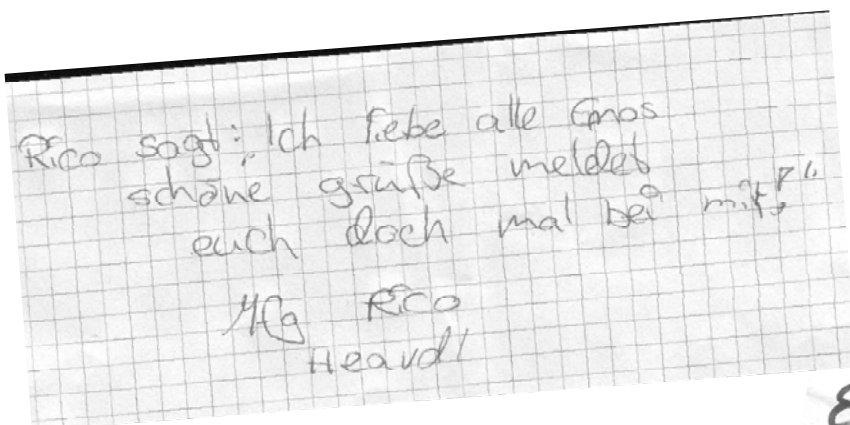 Rico sagt: „Ich liebe alle Emos
schöne grüße meldet
euch doch mal bei mir!“
Mfg Rico